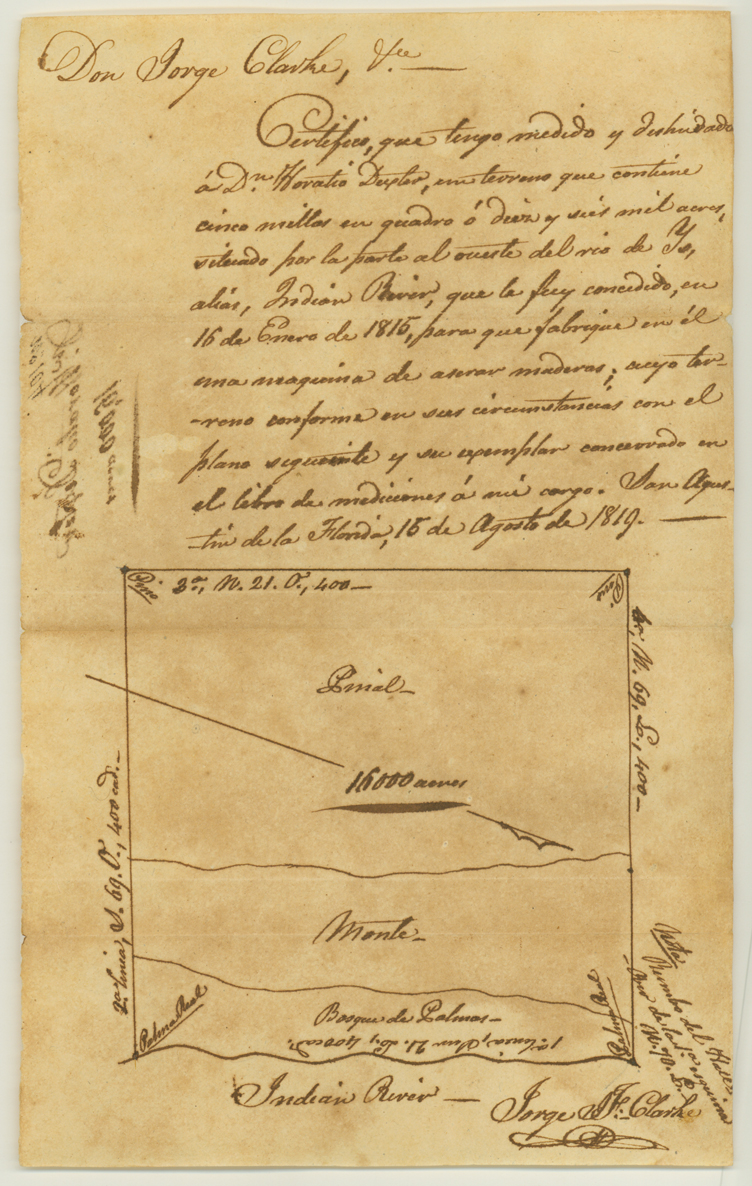 Don Jorge Clarke, &ce
Certifico, que tengo medido y deslindado
á Dn. Horatio Dexter, un terreno que contiene
cinco millas en quadro ó diez y seis mil acres,
situado por la parte al oueste del rio de Ys,
aliás, Indian River, que le fuy concedido, en
15 de Enero de 1815, para que fabrique en él
una maquina de aserar maderas; cuyo ter-
-reno conforme en sus circumstancias con el
plano siguiente y su exemplar concervado en
el libro de mediciones á mi cargo. San Agus-
-tin de la Florida, 15 de Agosto de 1819.
16000 acres
Pino
3a., N. 21. O., 400
Pino
4a., N. 69. E., 400
Pinal
16000 acres
2a. linea, S. 69. O., 400 cad.
Monte
Palma Real
Bosque de Palmas
1a. linea, S. 21. E., 400 cad.
Palma Real
Nota
Rumbo del
Rio de la 1a. esquina
N. 70. E.
Indian River
Jorge J. F. Clarke